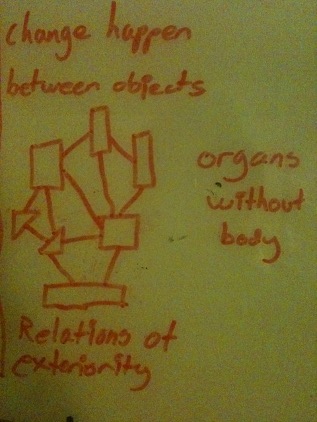 change happen
between objects
organs
without
body
Relations of
exteriority